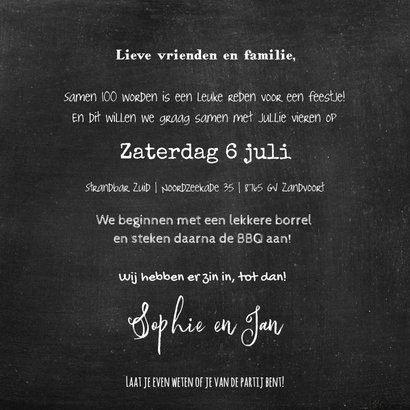 Lieve vrienden en familie,
Samen 100 worden is een leuke reden voor een feestje!
En dit willen we graag samen met jullie vieren op
Zaterdag 6 juli
Strandbar Zuid | Noordzeekade 35 | 8765 GV Zandvoort
We beginnen met een lekkere borrel
en steken daarna de BBQ aan!
Wij hebben er zin in, tot dan!
Sophie en Jan
Laat je even weten of je van de partij bent!